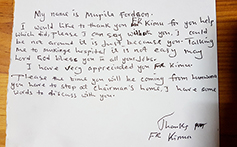 My name is Mupila Ferdson.
I would like to thank you Fr Kimu for you help
which did, Please I can say without you, I could
be not around it is just because you. Talking
me to hospital it is not easy may
Lord God bless you in all your jobs.
I have very appreciated you Fr Kimu.
Please the time you will be coming from
you have to stop at chairman's home, I have some
words to discuss with you.
Thanks
Fr Kimu